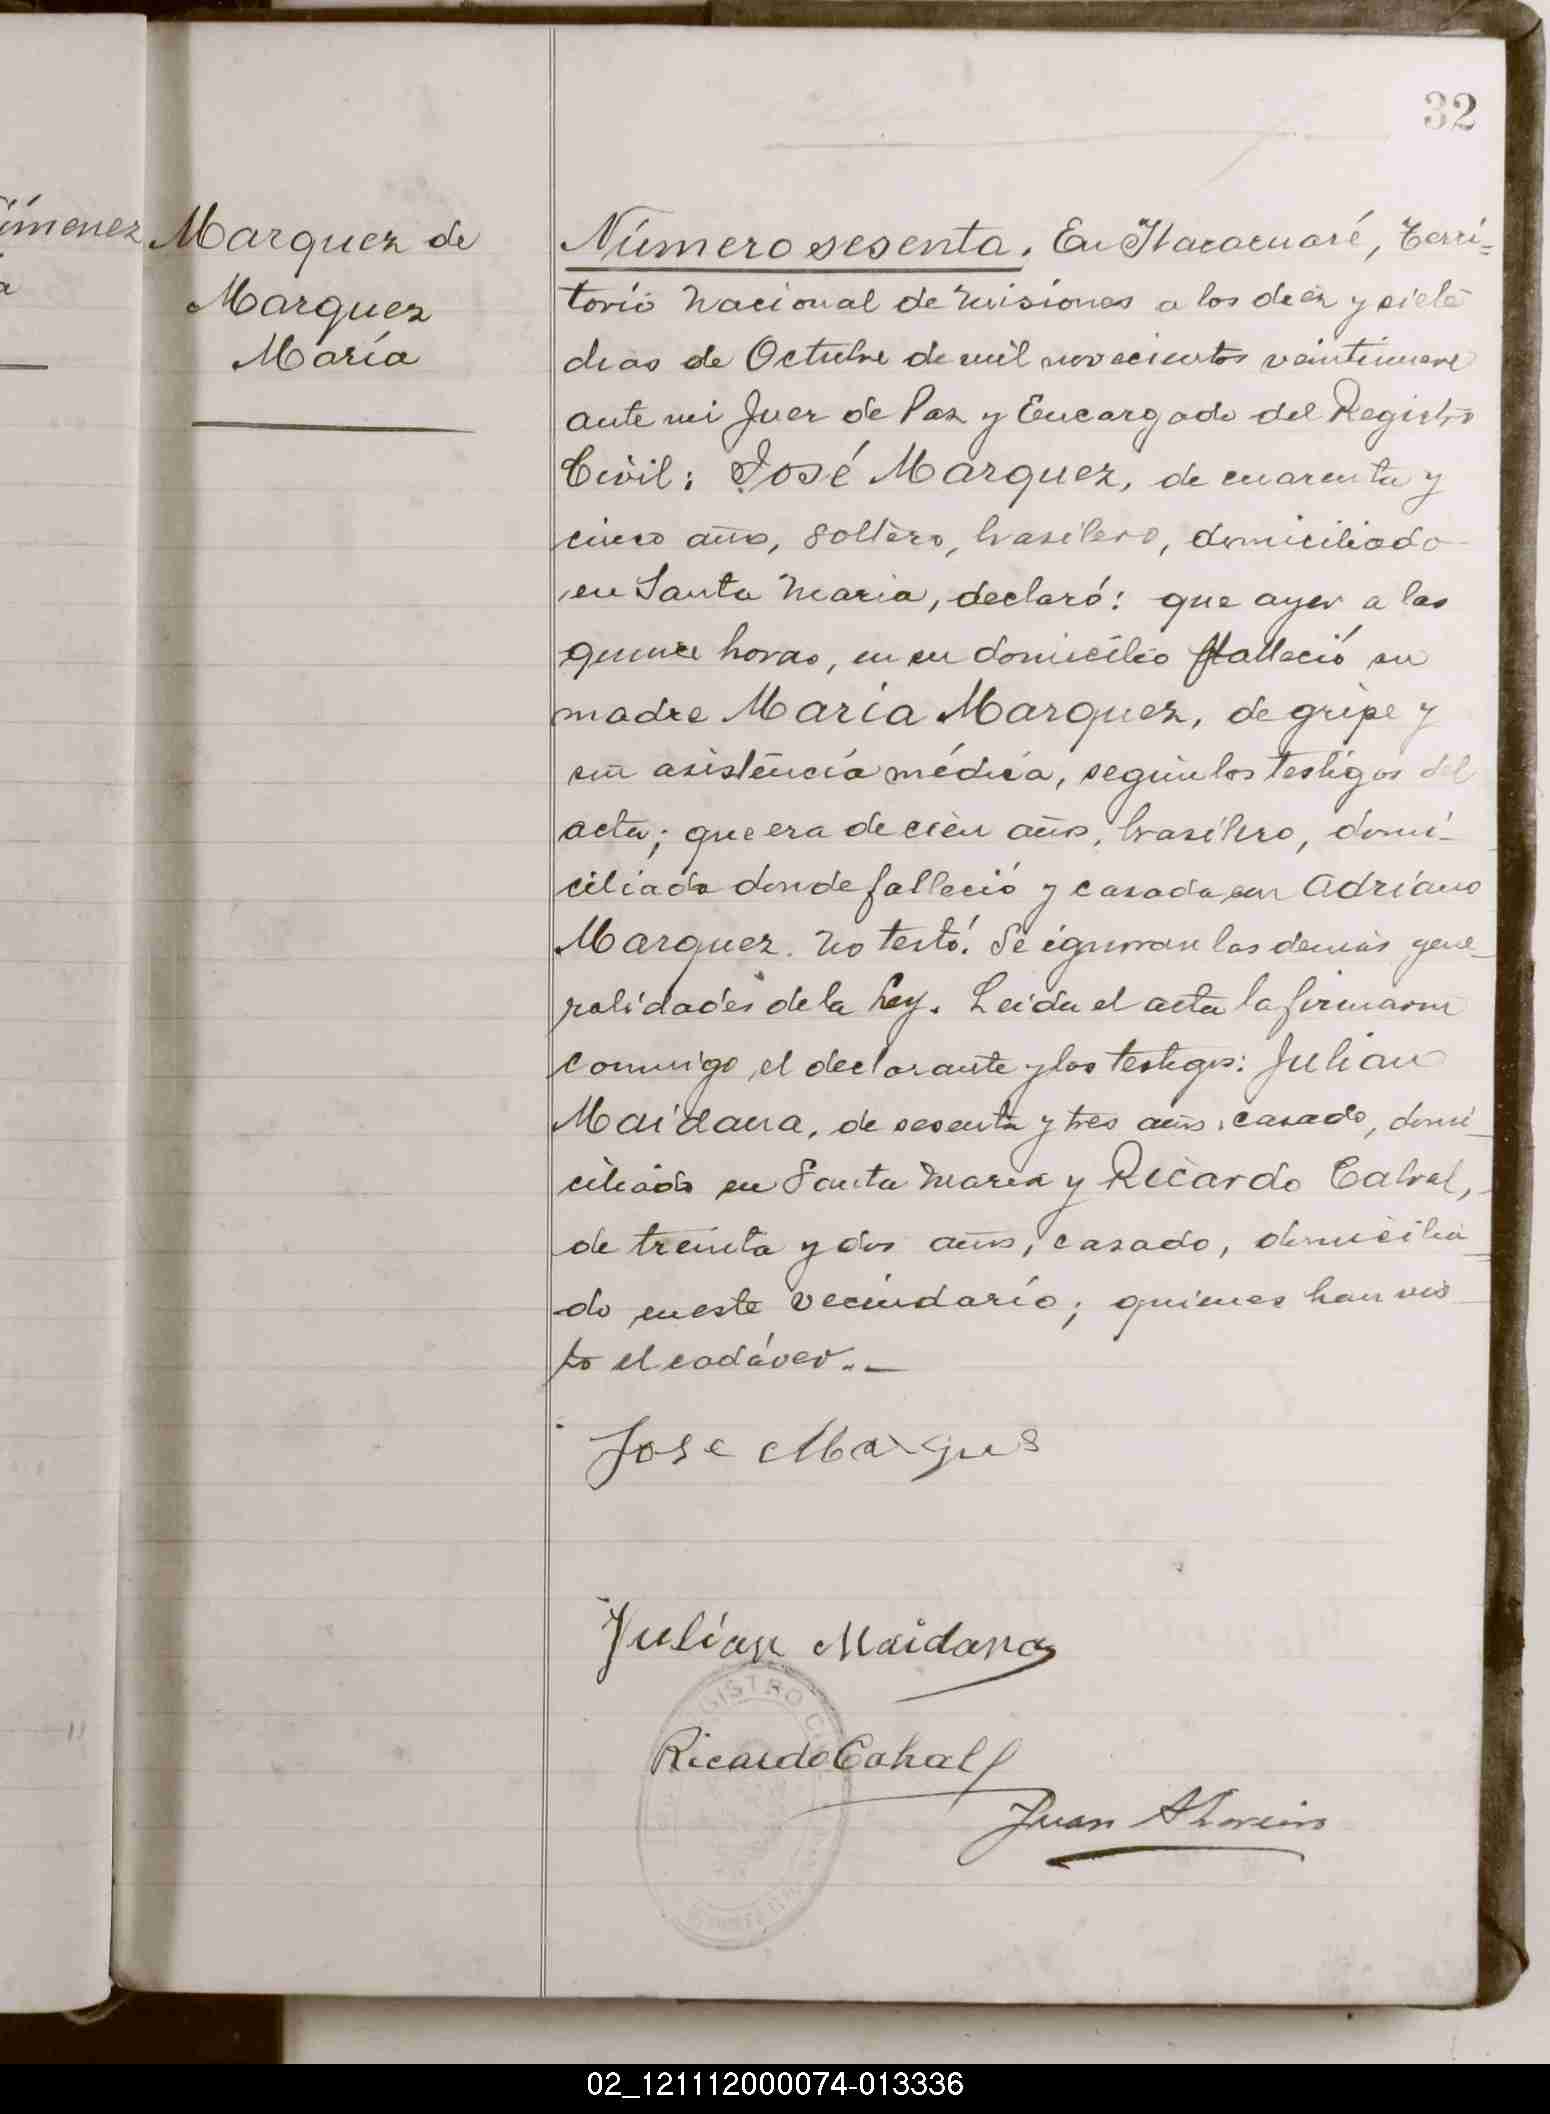 32
imenez
Marquez de
Marquez
María
Número sesenta. En Itacaruaré, Terri=
torio Nacional de Misiones a los diez y siete
dias de Octubre de mil novecientos veintinueve
ante mi Juez de Paz y Encargado del Registro
Civil: José Marquez, de cuarenta y
cinco años, soltero, brasilero, domiciliado
en Santa Maria, declaró: que ayer a las
quince horas, en su domicilio falleció su
madre Maria Marquez, de gripe y
sin asistencia médica, según los testigos del
acta; que era de cien años, brasilera, domi-
ciliada donde falleció y casada con Adriano
Marquez. No testó. Se ignoran las demás gene-
ralidades de la Ley. Leida el acta la firmaron
conmigo el declarante y los testigos: Julian
Maidana, de sesenta y tres años, casado, domi-
ciliado en Santa Maria y Ricardo Cabral,
de treinta y dos años, casado, domicilia-
do en este vecindario; quienes han vis-
to el cadáver.._
Jose Marques
Julían Maidana
Ricardo Cabral
Juan
REGISTRO
02_121112000074-013336